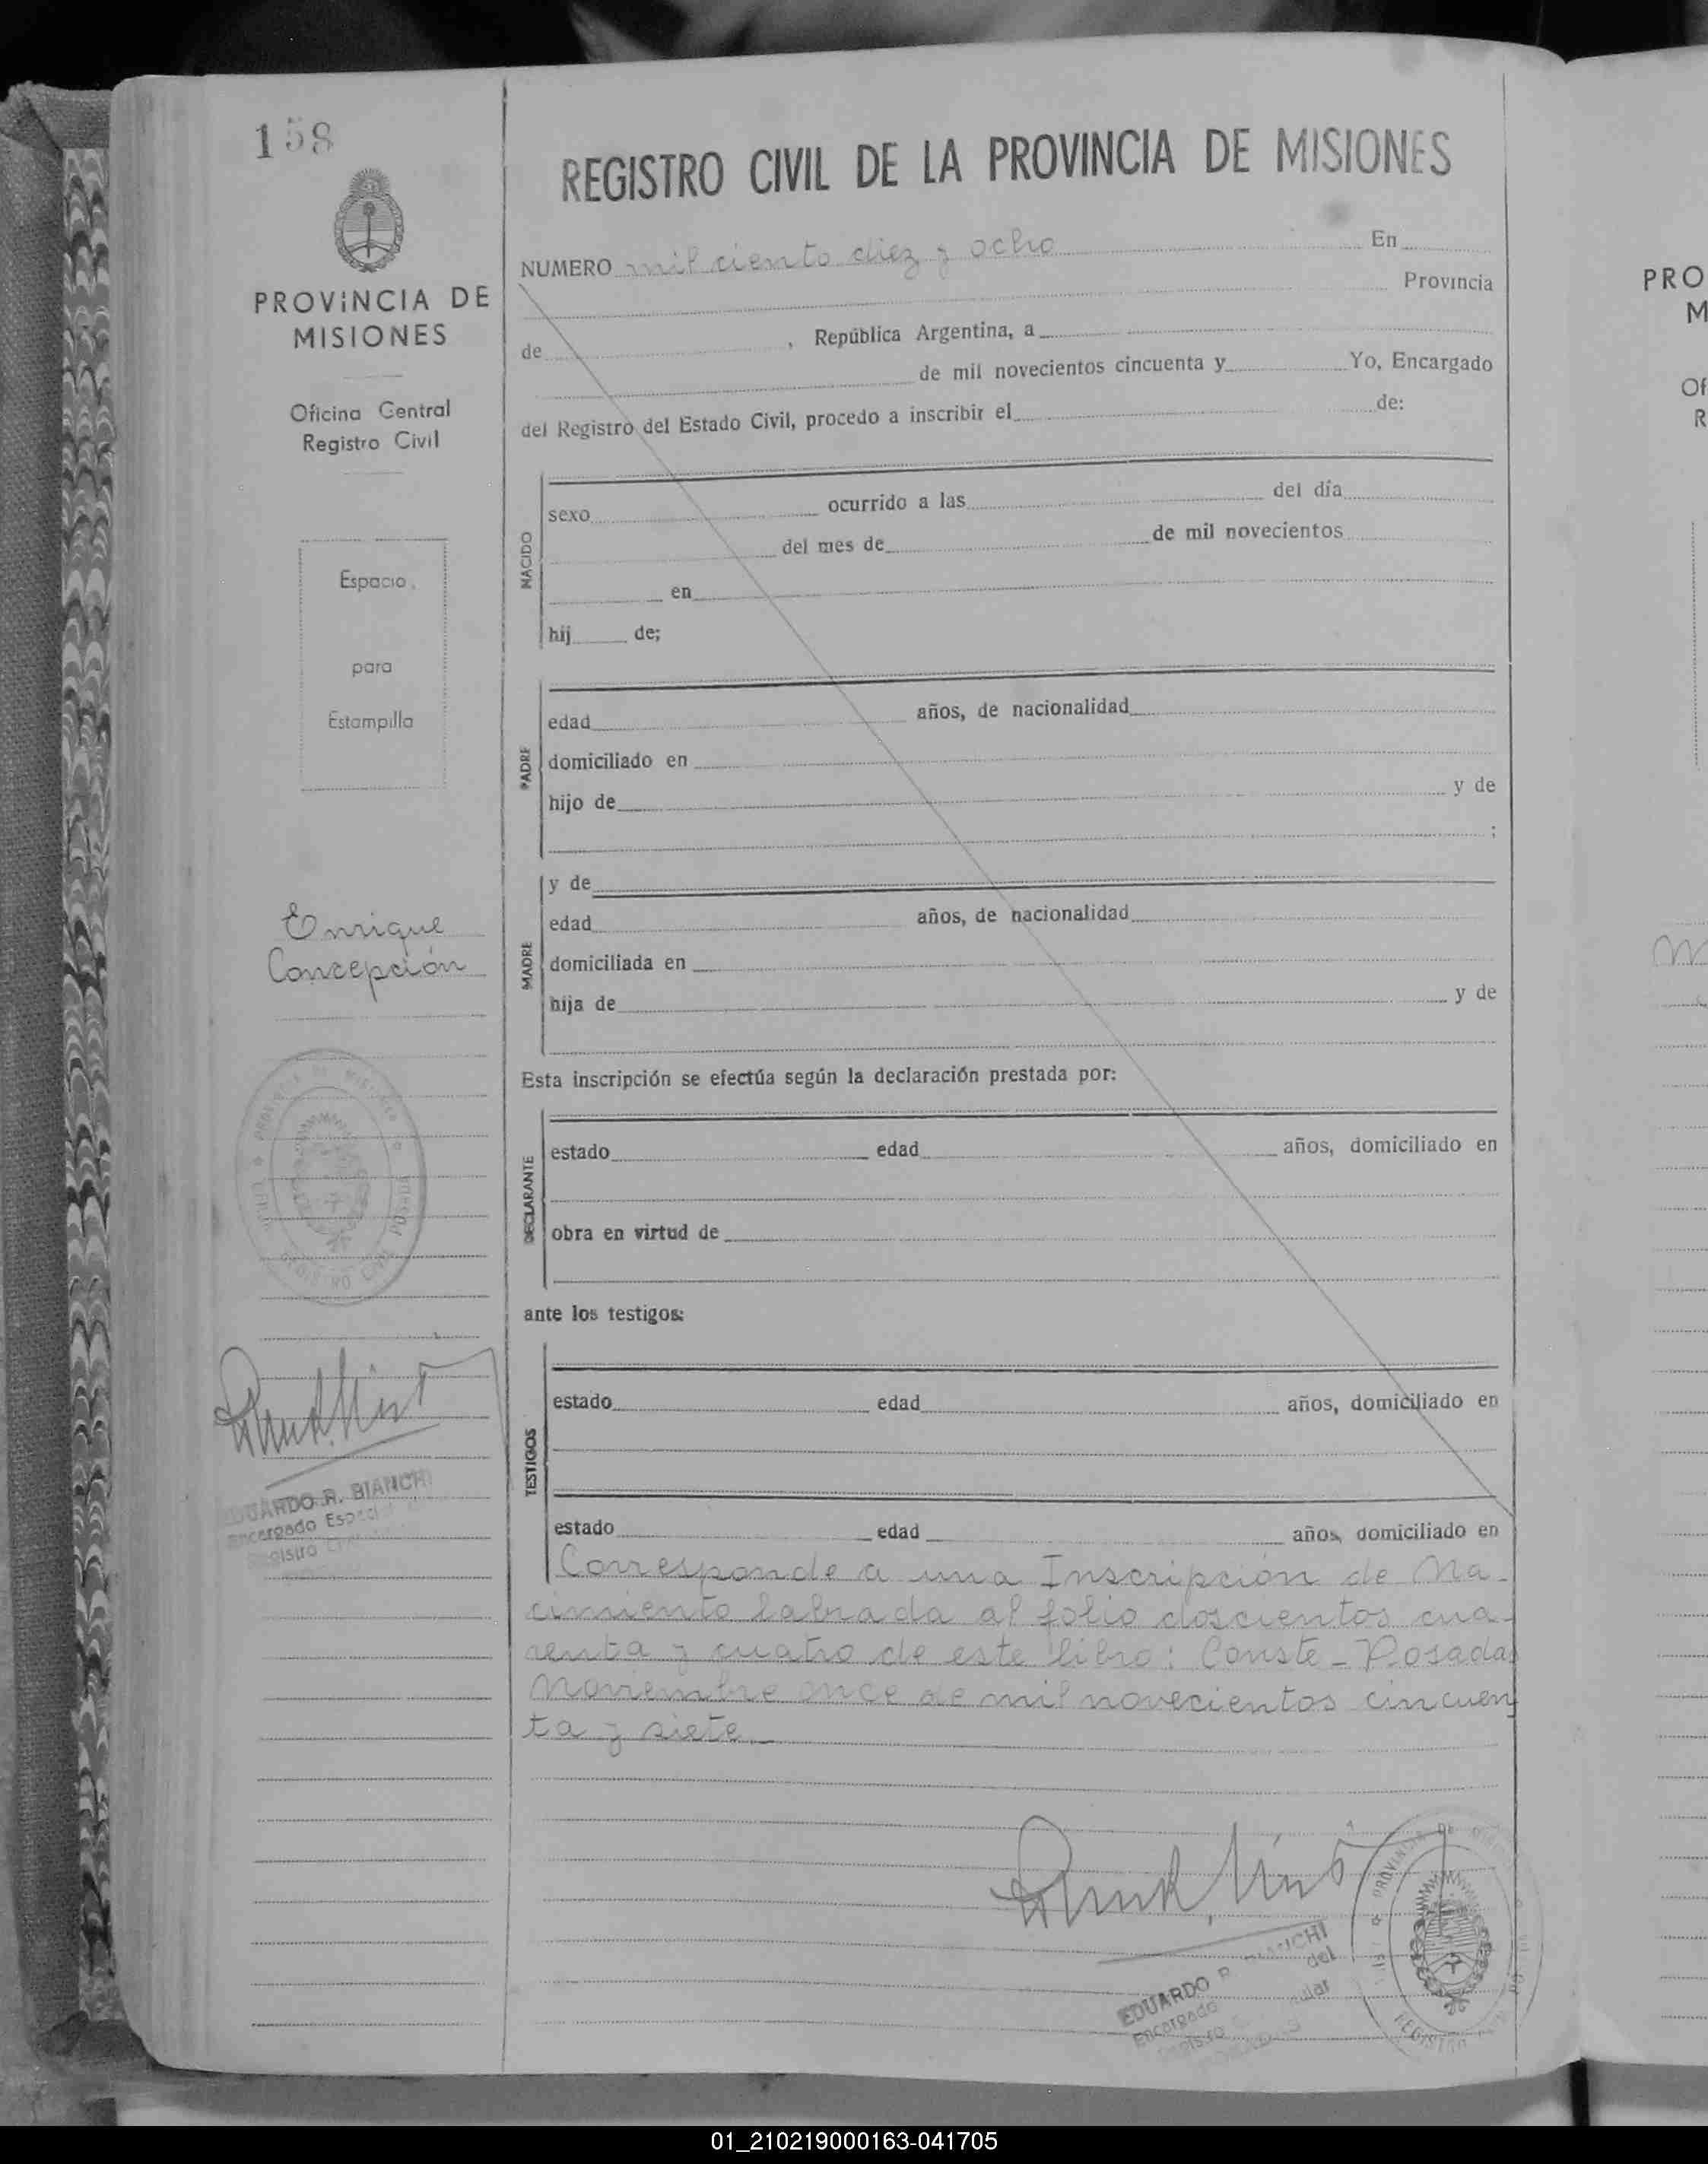 158
REGISTRO CIVIL DE LA PROVINCIA DE MISIONES
NUMERO mil ciento diez y ocho En
Provincia
de , República Argentina, a
de mil novecientos cincuenta y Yo, Encargado
del Registro del Estado Civil, procedo a inscribir el de:
NACIDO
sexo ocurrido a las del día
del mes de de mil novecientos
en
hij de;
PADRE
edad años, de nacionalidad
domiciliado en
hijo de y de
;
MADRE
y de
edad años, de nacionalidad
domiciliada en
hija de y de
Esta inscripción se efectúa según la declaración prestada por:
DECLARANTE
estado edad años, domiciliado en
obra en virtud de
ante los testigos:
TESTIGOS
estado edad años, domiciliado en
estado edad años, domiciliado en
Corresponde a una Inscripción de Na-
cimiento labrada al folio doscientos cua-
renta y cuatro de este libro: Conste - Posadas
Noviembre once de mil novecientos cincuen
ta y siete.-
EDUARDO R. BIANCHI
Encargado del
PROVINCIA DE
MISIONES
Oficina Central
Registro Civil
Espacio
para
Estampilla
Enrique
Concepción
EDUARDO R. BIANCHI
Encargado
Registro
PRO
M
Of
R
01_210219000163-041705